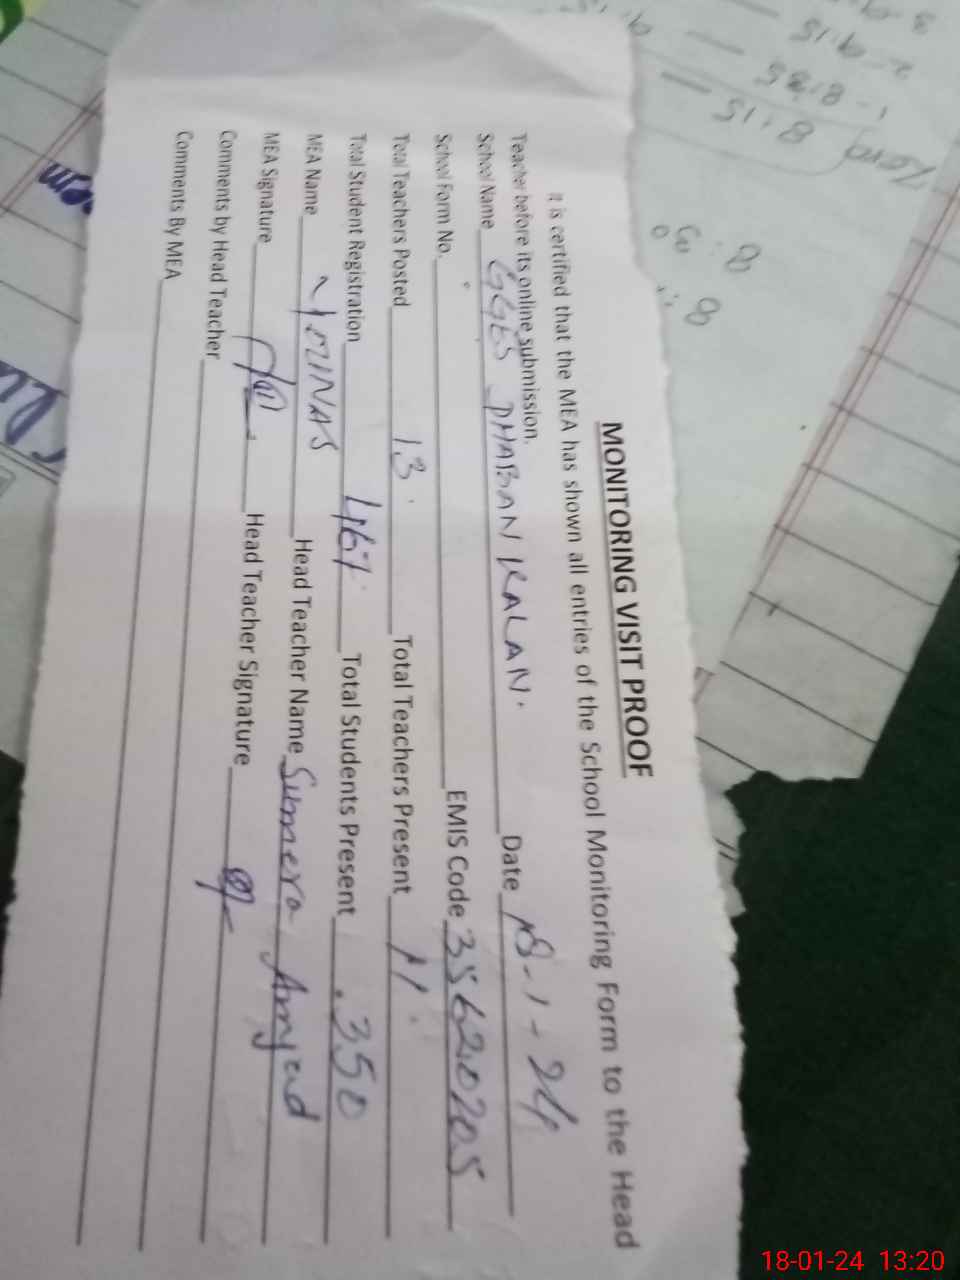 MONITORING VISIT PROOF
It is certified that the MEA has shown all entries of the School Monitoring Form to the Head
Teacher before its online submission.
School Name GGES DHABAN KALAN. Date 18-1-24
School Form No. EMIS Code 35620205
Total Teachers Posted 13 Total Teachers Present 11
Total Student Registration 467 Total Students Present 350
MEA Name Head Teacher Name Sumera Amjad
MEA Signature Head Teacher Signature
Comments by Head Teacher
Comments By MEA
8:15
9:15
18-01-24 13:20